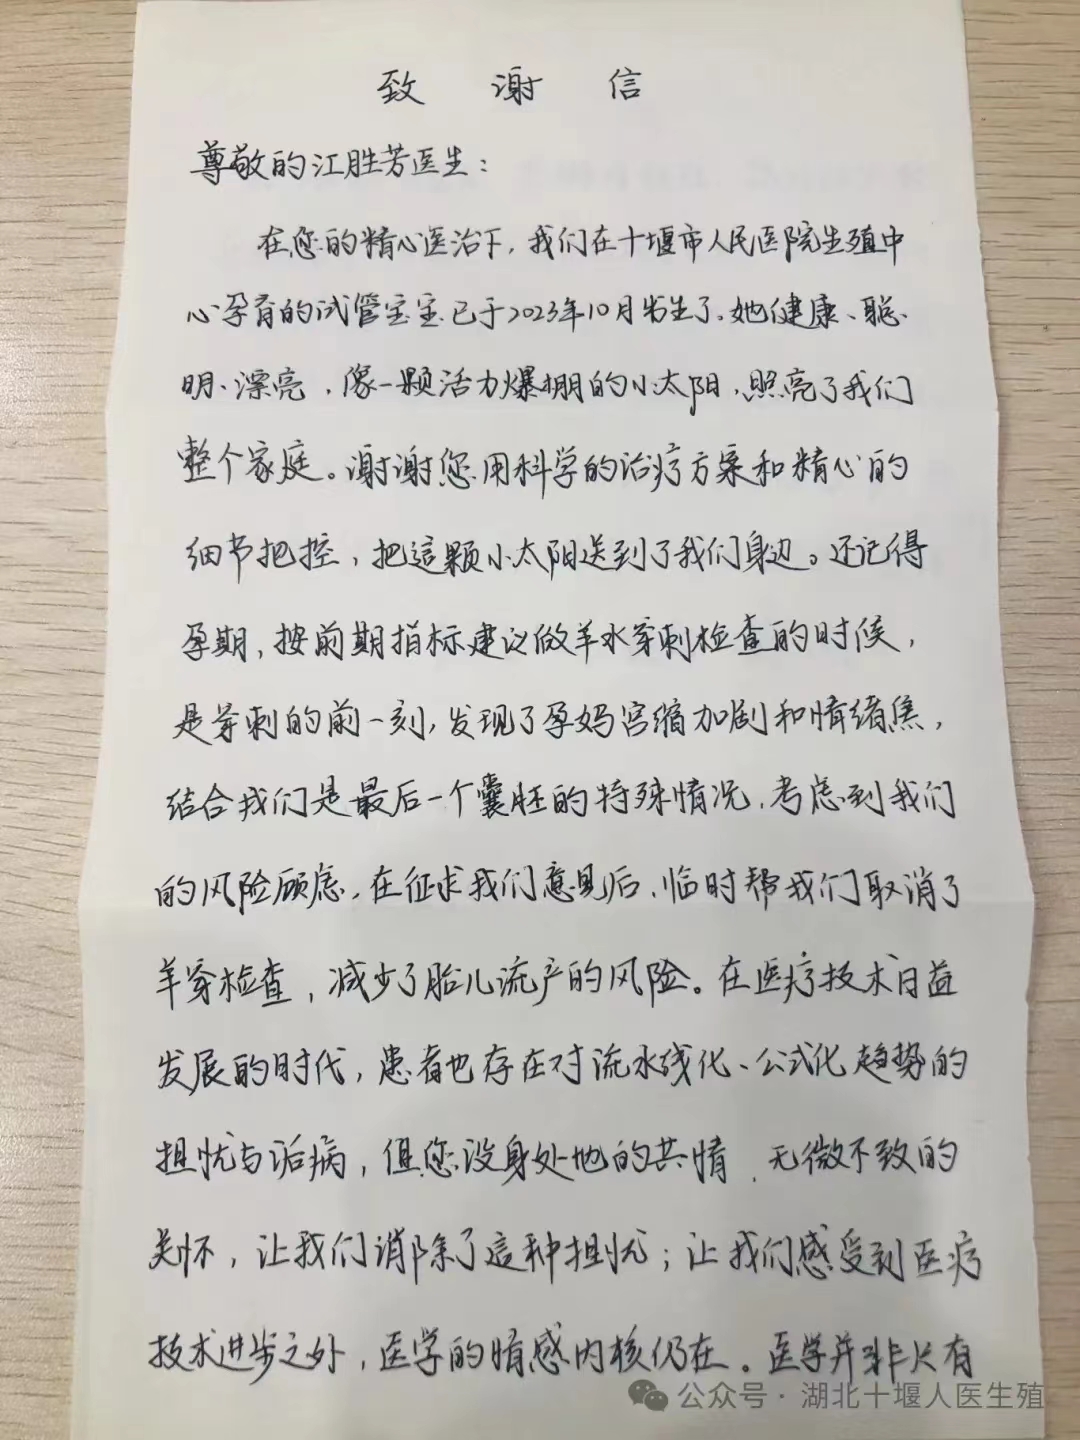 致谢信
尊敬的江胜芳医生：
在您的精心医治下，我们在十堰市人民医院生殖中
心孕育的试管宝宝已于2023年10月出生了。她健康、聪
明、漂亮，像一颗活力爆棚的小太阳，照亮了我们
整个家庭。谢谢您用科学的治疗方案和精心的
细节把控，把這颗小太阳送到了我们身边。还记得
孕期，按前期指标建议做羊水穿刺检查的时候，
是穿刺的前一刻，发现了孕妈宫缩加剧和情绪焦，
结合我们是最后一个囊胚的特殊情况，考虑到我们
的风险顾虑，在征求我们意见后，临时帮我们取消了
羊穿检查，减少了胎儿流产的风险。在医疗技术日益
发展的时代，患者也存在对流水线化、公式化趋势的
担忧与诟病，但您设身处地的共情、无微不致的
关怀，让我们消除了這种担忧；让我们感受到医疗
技术进步之外，医学的情感内核仍在。医学并非只有
公众号·湖北十堰人医生殖